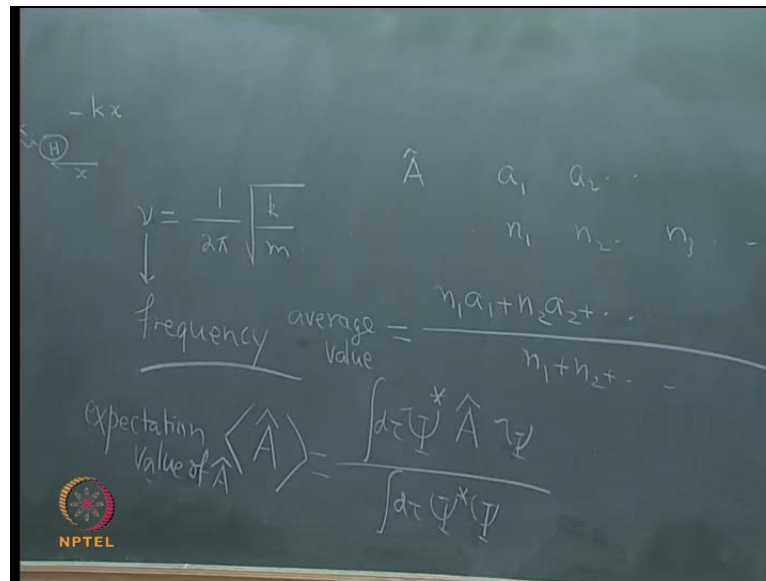 -kx
H
x
Â a₁ a₂ ..
n₁ n₂ . n₃ . -
ν = 1/2π √k/m
frequency
average value = n₁a₁+n₂a₂+... / n₁+n₂+.. -
expectation value of Â ⟨Â⟩ = ∫dτ Ψ* Â Ψ / ∫dτ Ψ* Ψ
NPTEL